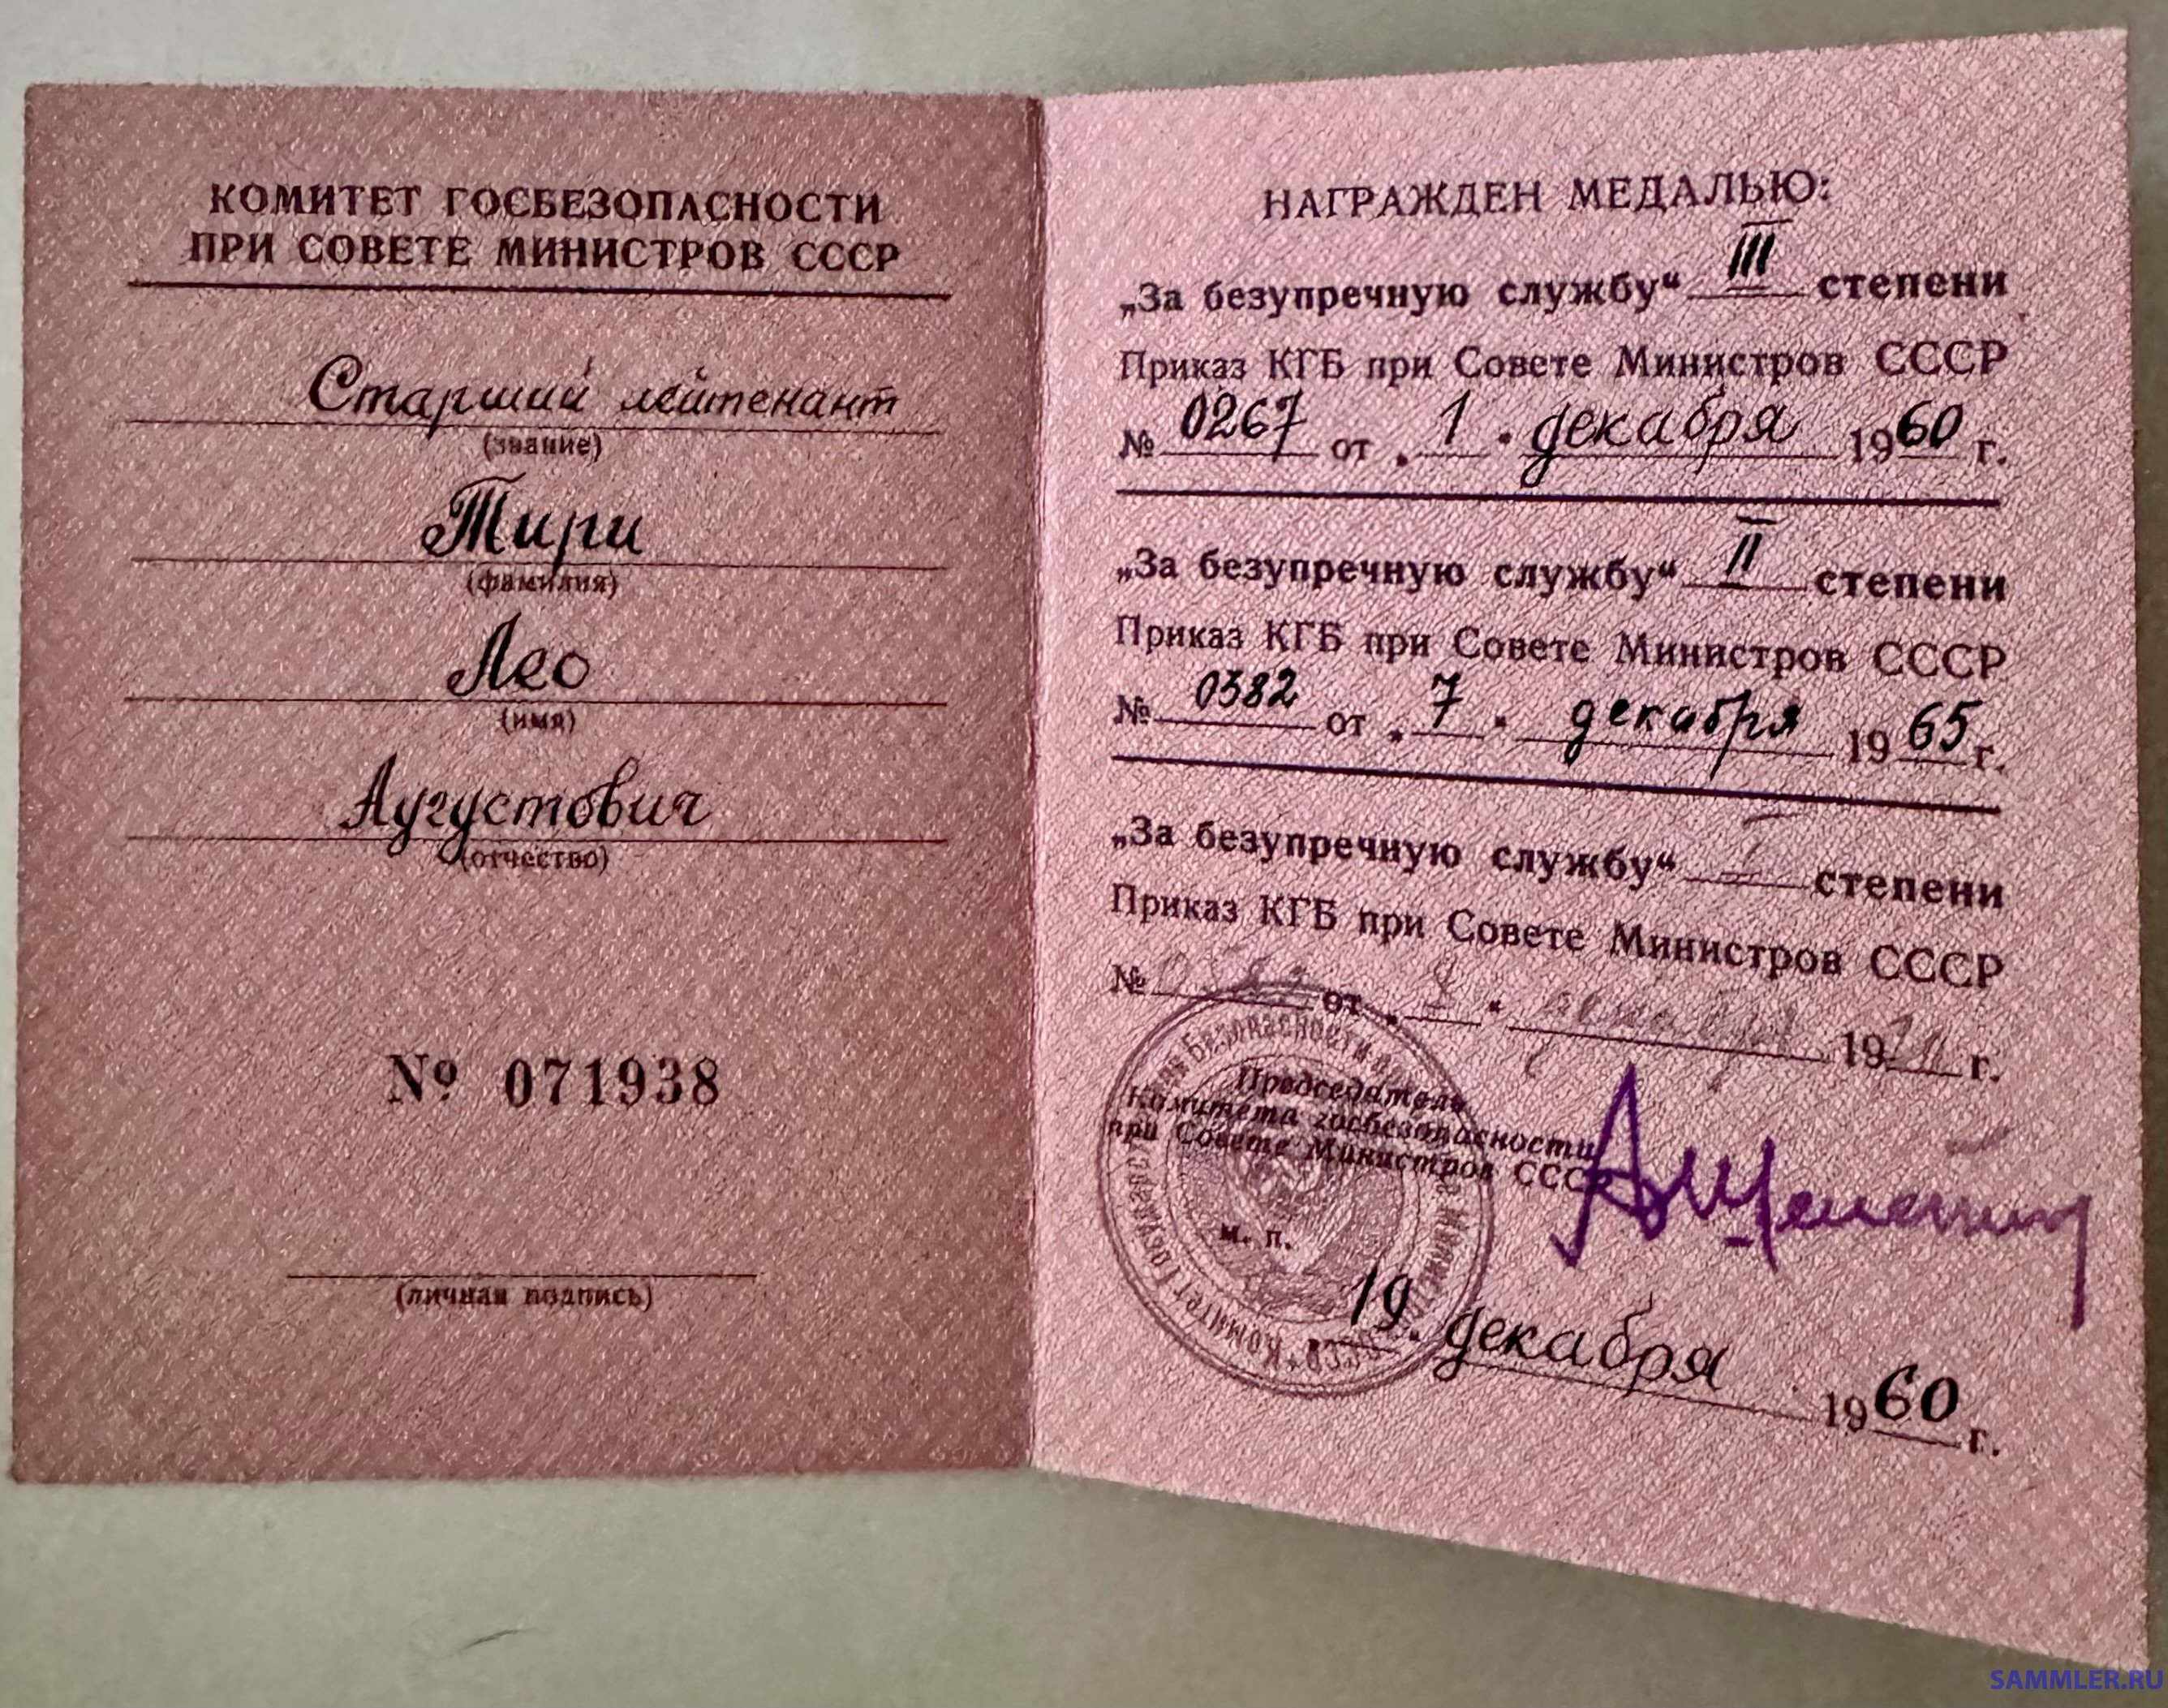 КОМИТЕТ ГОСБЕЗОПАСНОСТИ
ПРИ СОВЕТЕ МИНИСТРОВ СССР
Старший лейтенант
(звание)
Тири
(фамилия)
Лео
(имя)
Аугустович
(отчество)
№ 071938
(личная подпись)
НАГРАЖДЕН МЕДАЛЬЮ:
„За безупречную службу“ III степени
Приказ КГБ при Совете Министров СССР
№ 0267 от „1" декабря 1960 г.
„За безупречную службу“ II степени
Приказ КГБ при Совете Министров СССР
№ 0382 от „7" декабря 1965 г.
„За безупречную службу“ I степени
Приказ КГБ при Совете Министров СССР
№ от 19 г.
Председатель
Комитета госбезопасности
при Совете Министров СССР
м. п.
19 декабря 1960 г.
SAMMLER.RU